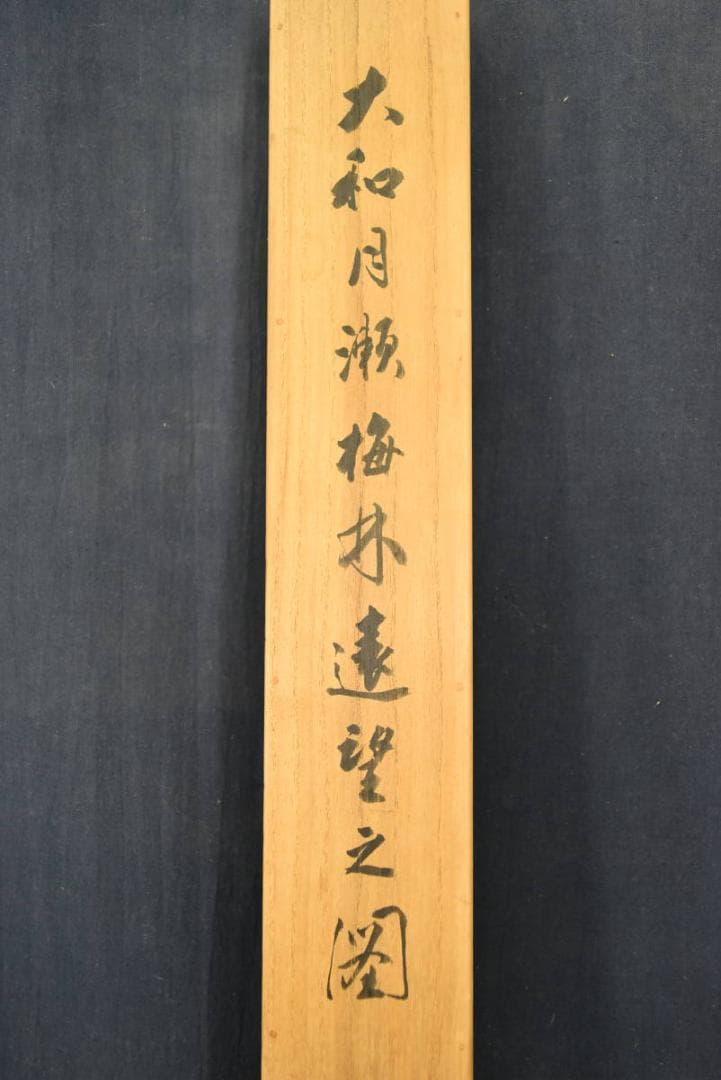 大和月瀬梅林遠望之圖